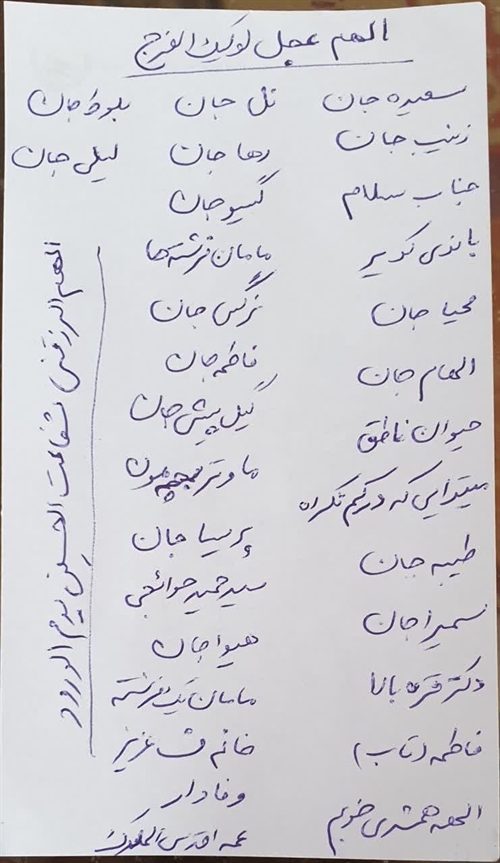 اللهم عجل لولیک الفرج
سعیده جان
زینب جان
جناب سلام
باندی کدیر
محیا جان
الهام جان
حیوان ناطق
مبتدایی که درگیم تکراه
طیبه جان
سمیرا جان
دکتر قره بالا
فاطمه (تاب)
الهه همشهری خوبم
تل جان
رها جان
گیسو جان
مامان فرشته ها
نرگس جان
فاطمه جان
گیل پیشی جان
ما و تربچه مون
پریسا جان
سید حمید حوائجی
هیوا جان
مامان یک فرشته
خانم ف عزیز
وفادار
عمه اقدس الملوک
بلوط جان
لیلی جان
اللهم الرزقنی شفاعت الحسین یوم الورود